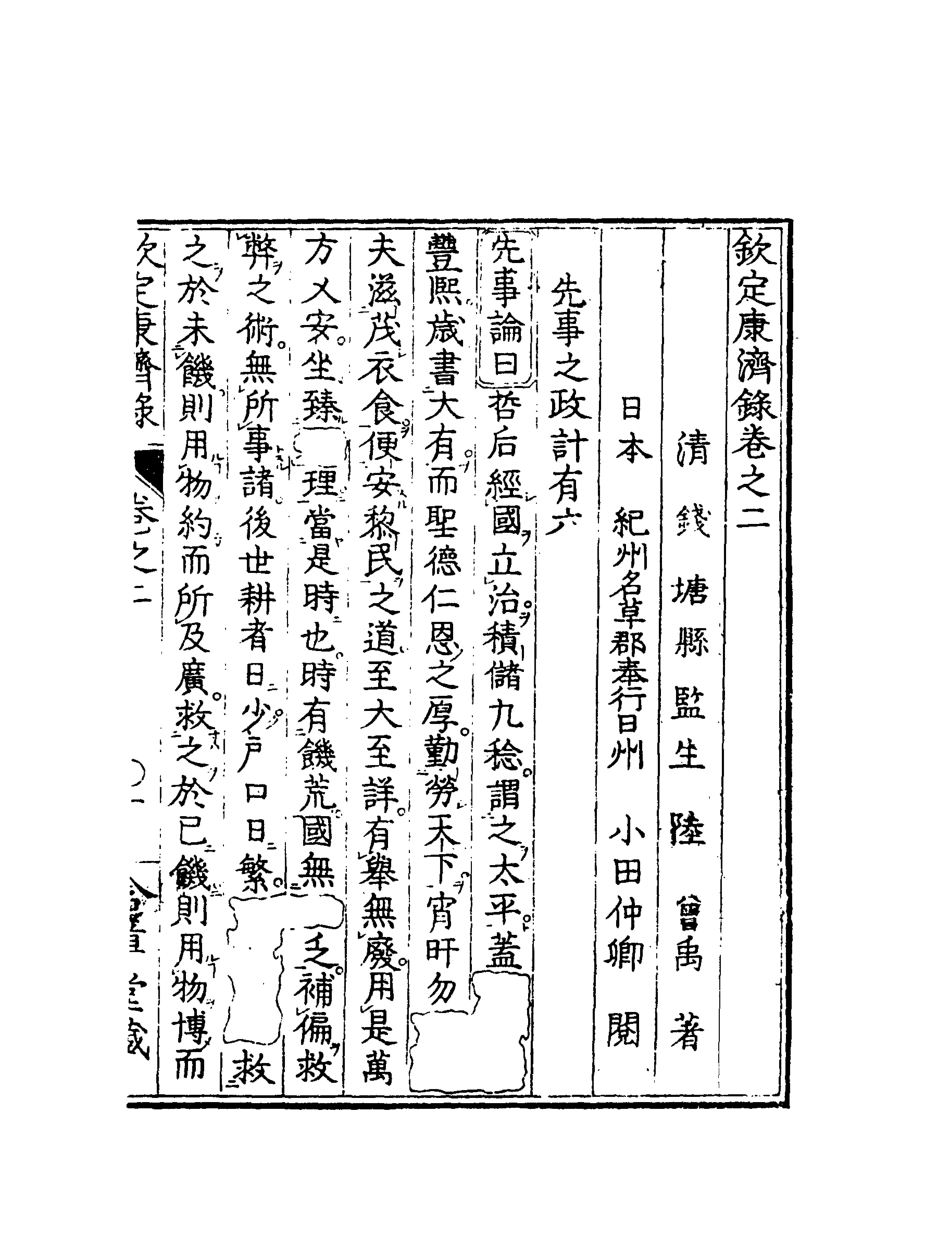 欽定康濟錄卷之二
清 錢塘縣監生 陸曾禹 著
日本 紀州名草郡奉行日州 小田仲卿 閱
先事之政計有六
先事論曰哲后經國立治積儲九稔謂之太平蓋
豐熙歲書大有而聖德仁恩之厚勤勞天下宵旰勿
夫滋茂衣食便安黎民之道至大至詳有舉無廢用是萬
方乂安坐臻 理當是時也時有饑荒國無 乏補偏救
弊之術無所事諸後世耕者日少戶口日繁 救
之於未饑則用物約而所及廣救之於已饑則用物博而
欽定康濟錄 卷之二 堂藏